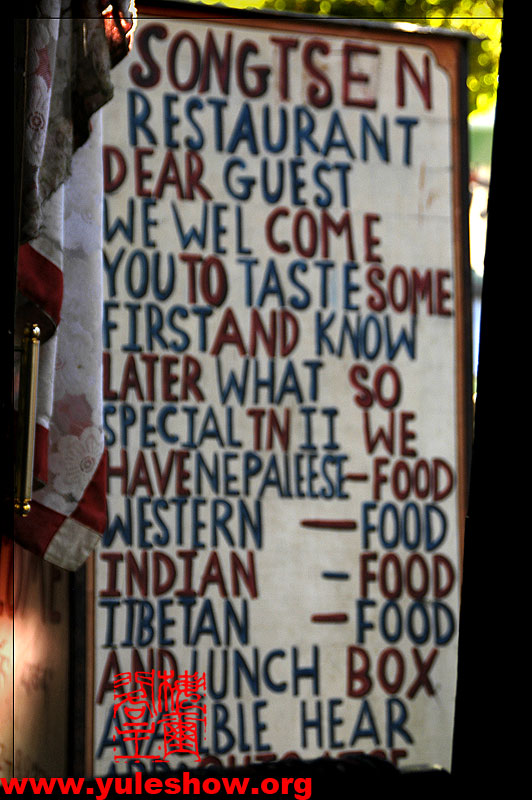 SONGTSEN
RESTAURANT
DEAR GUEST
WE WEL COME
YOU TO TASTE SOME
FIRST AND KNOW
LATER WHAT SO
SPECIAL TN II WE
HAVE NEPALEESE-FOOD
WESTERN - FOOD
INDIAN - FOOD
TIBETAN - FOOD
AND LUNCH BOX
HEAR
www.yuleshow.org